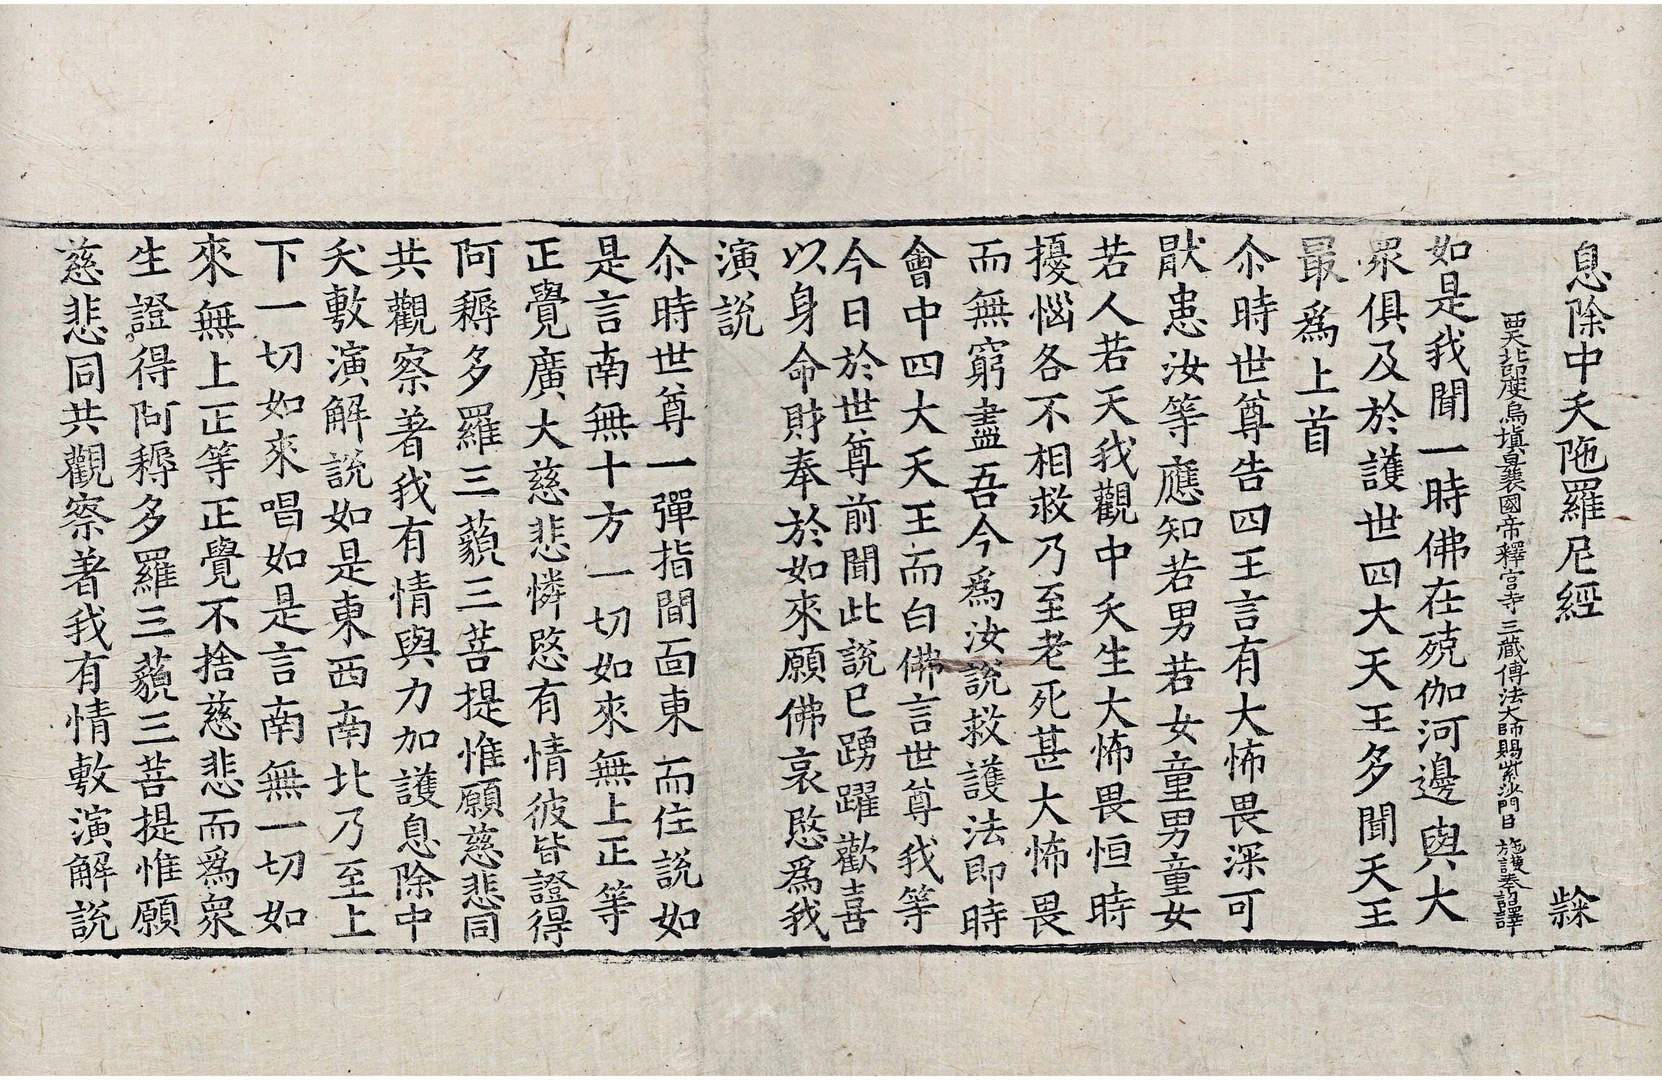 息除中夭陁羅尼經
西天北印度烏塡曩國帝釋宮寺三藏傳法大師賜紫沙門臣 施護奉 詔譯
如是我聞一時佛在殑伽河邊與大
衆俱及於護世四大天王多聞天王
最爲上首
尒時世尊告四王言有大怖畏深可
猒患汝等應知若男若女童男童女
若人若天我觀中夭生大怖畏恒時
擾惱各不相救乃至老死甚大怖畏
而無窮盡吾今爲汝說救護法即時
會中四大天王而白佛言世尊我等
今日於世尊前聞此說已踴躍歡喜
以身命財奉於如來願佛哀愍爲我
演說
尒時世尊一彈指間面東而住說如
是言南無十方一切如來無上正等
正覺廣大慈悲憐愍有情彼皆證得
阿耨多羅三藐三菩提惟願慈悲同
共觀察著我有情與力加護息除中
夭敷演解說如是東西南北乃至上
下一切如來唱如是言南無一切如
來無上正等正覺不捨慈悲而爲衆
生證得阿耨多羅三藐三菩提惟願
慈悲同共觀察著我有情敷演解說